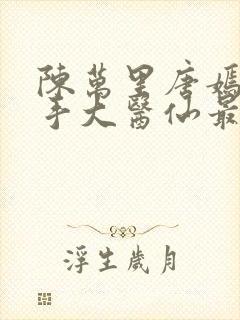 陳萬里唐嫣
手大醫仙最
浮生歲月